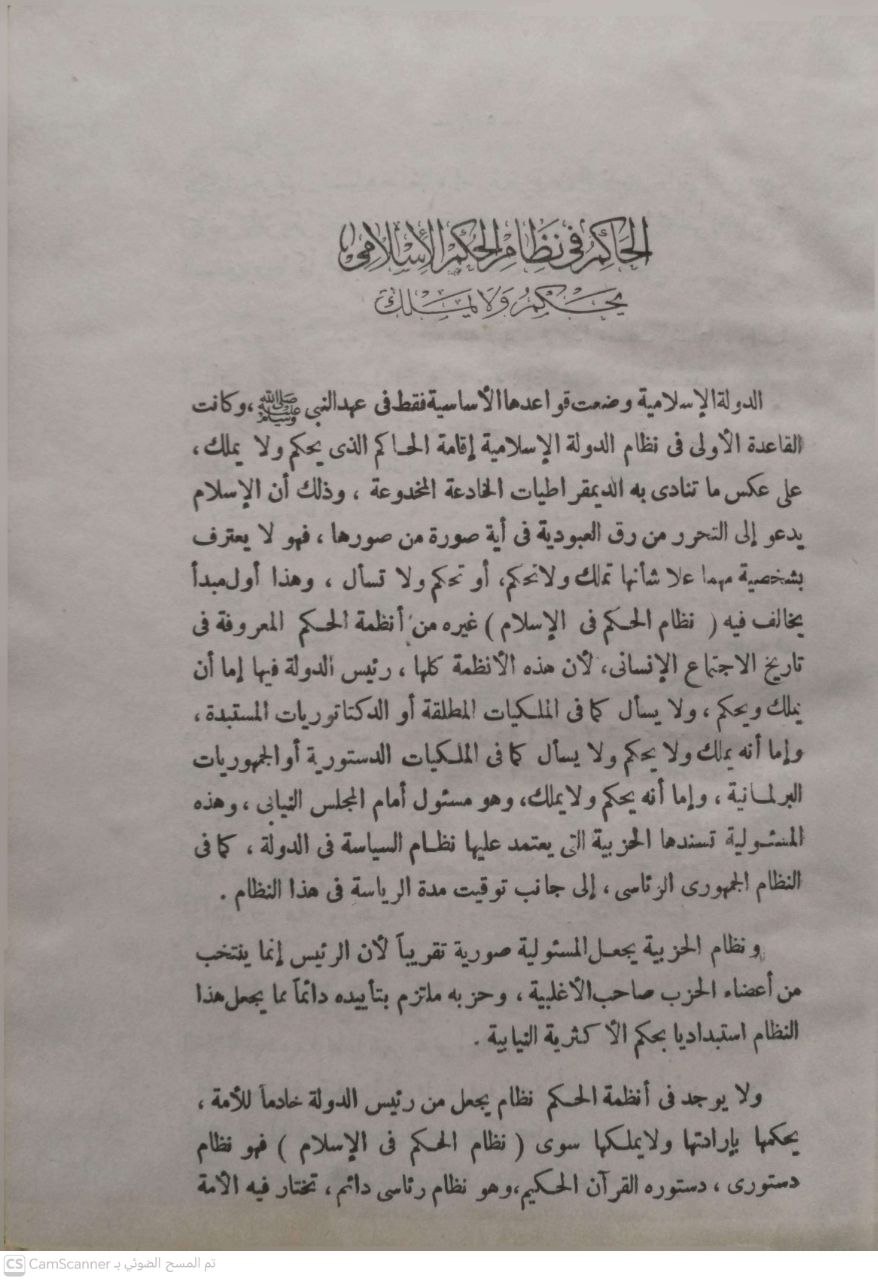 الحاكم في نظام الحكم الإسلامي
يحكم ولا يملك
الدولة الإسلامية وضعت قواعدها الأساسية فقط فى عهد النبى ﷺ ، وكانت
القاعدة الأولى فى نظام الدولة الإسلامية إقامة الحاكم الذى يحكم ولا يملك ،
على عكس ما تنادى به الديمقراطيات الخادعة المخدوعة ، وذلك أن الإسلام
يدعو إلى التحرر من رق العبودية فى أية صورة من صورها ، فهو لا يعترف
بشخصية مهما علا شأنها تملك ولا تحكم ، أو تحكم ولا تسأل ، وهذا أول مبدأ
يخالف فيه ( نظام الحكم فى الإسلام ) غيره من أنظمة الحكم المعروفة فى
تاريخ الاجتماع الإنسانى ، لأن هذه الأنظمة كلها ، رئيس الدولة فيها إما أن
يملك ويحكم ، ولا يسأل كما فى الملكيات المطلقة أو الدكتاتوريات المستبدة ،
وإما أنه يملك ولا يحكم ولا يسأل كما فى الملكيات الدستورية أو الجمهوريات
البرلمانية ، وإما أنه يحكم ولا يملك ، وهو مسئول أمام المجلس النيابى ، وهذه
المسئولية تسندها الحزبية التى يعتمد عليها نظام السياسة فى الدولة ، كما فى
النظام الجمهورى الرئاسى ، إلى جانب توقيت مدة الرياسة فى هذا النظام .
ونظام الحزبية يجعل المسئولية صورية تقريباً لأن الرئيس إنما ينتخب
من أعضاء الحزب صاحب الأغلبية ، وحزبه ملتزم بتأييده دائماً مما يجعل هذا
النظام استبداديا بحكم الأكثرية النيابية .
ولا يوجد فى أنظمة الحكم نظام يجعل من رئيس الدولة خادماً للأمة ،
يحكمها بإرادتها ولا يملكها سوى ( نظام الحكم فى الإسلام ) فهو نظام
دستورى ، دستوره القرآن الحكيم ، وهو نظام رئاسى دائم ، تختار فيه الأمة
CS CamScanner تم المسح الضوئي بـ